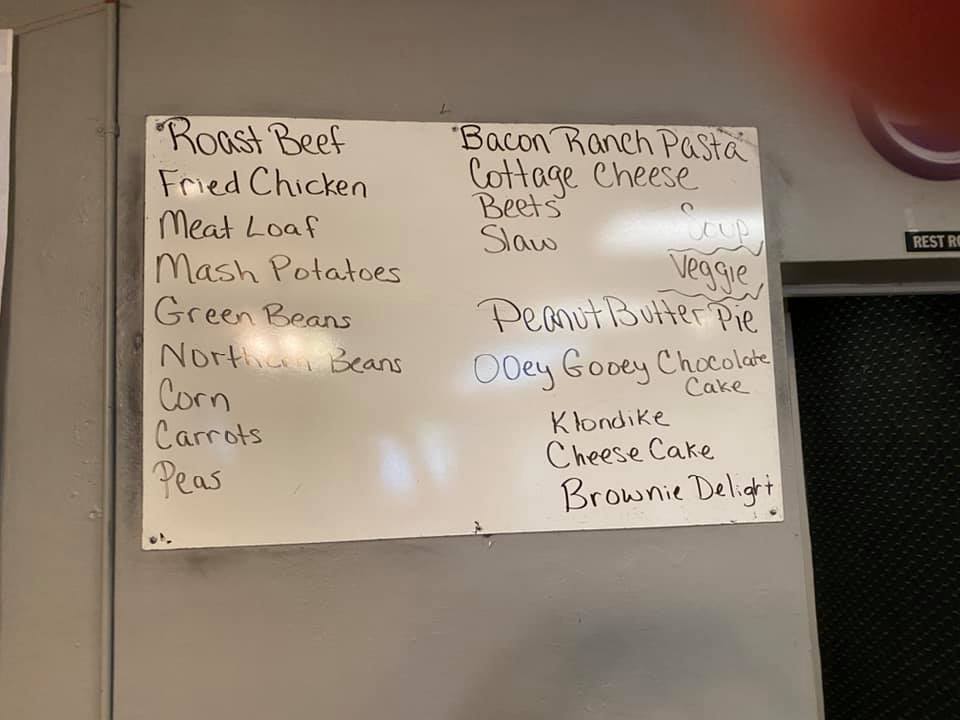 Roast Beef
Fried Chicken
Meat Loaf
Mash Potatoes
Green Beans
Northern Beans
Corn
Carrots
Peas
Bacon Ranch Pasta
Cottage Cheese
Beets
Slaw
Soup
Veggie
Peanut Butter Pie
OOey Gooey Chocolate
Cake
Klondike
Cheese Cake
Brownie Delight
REST